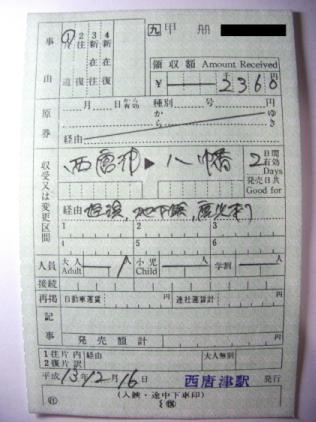 九 甲 冊
事由
① 片道
2 往復
3 新在往
4 新在復
領収額 Amount Received
¥ 2360
千 円
原券
月 日から有効 種別 号 円
から ゆき
経由
収受又は変更区間
西唐津 ▶ 八幡
2 日間有効 Days
発売日共 Good for
経由 地下鉄, 鹿児本
1 2 3
4 5 6
人員 大人 Adult 1 小児 Child 学割
接続
再掲 自動車運賃 円 連社運賃計 円
記事
発売額計 円
1 往片 内 経由 大人無割
2 復片 訳 円
平成 13年12月16日 西唐津駅 発行
(入鋏・途中下車印)